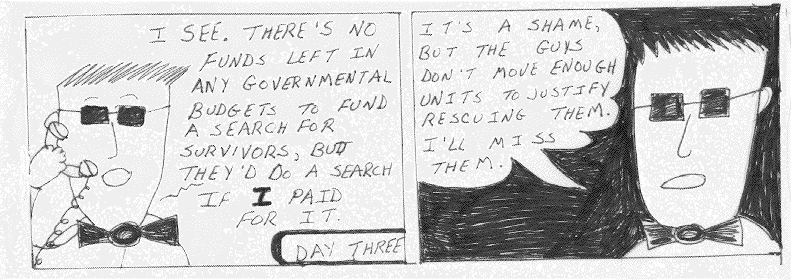 I SEE. THERE'S NO
FUNDS LEFT IN
ANY GOVERNMENTAL
BUDGETS TO FUND
A SEARCH FOR
SURVIVORS, BUT
THEY'D DO A SEARCH
IF I PAID
FOR IT.
DAY THREE
IT'S A SHAME,
BUT THE GUYS
DON'T MOVE ENOUGH
UNITS TO JUSTIFY
RESCUING THEM.
I'LL MISS
THEM.